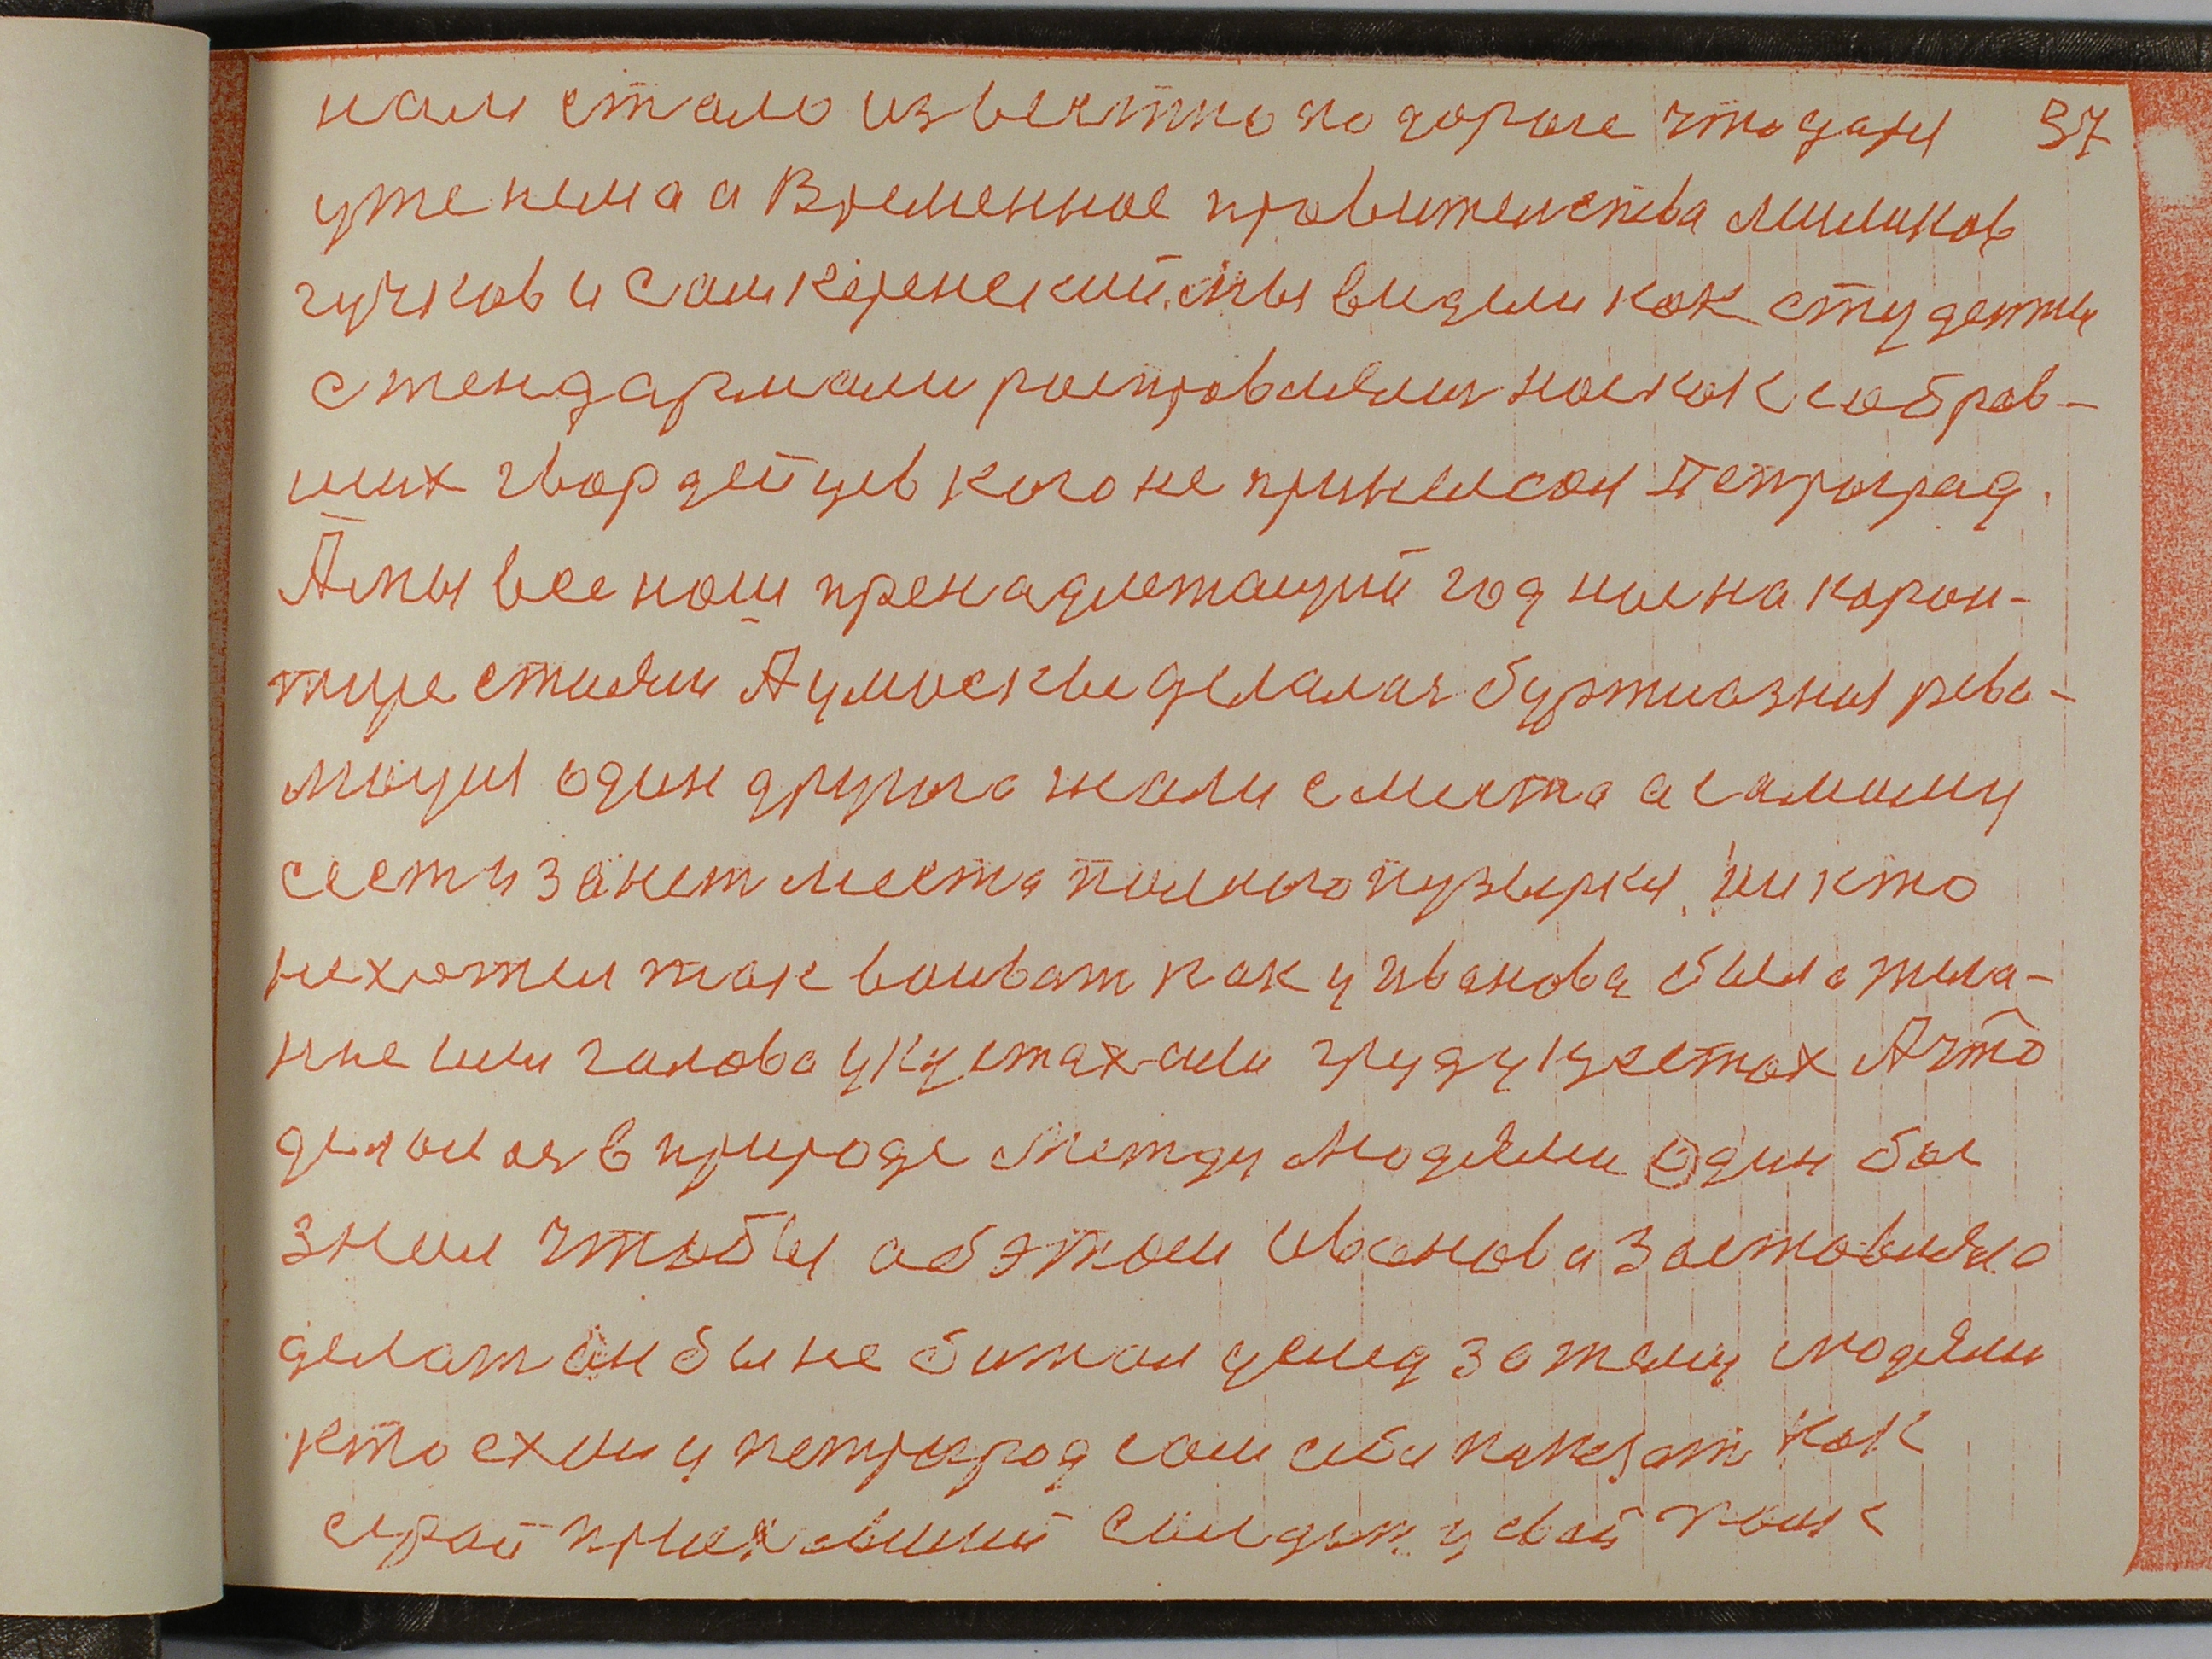 нам стало известно по дороге что царя 37
уже нема а Временное правителства миликов
гучков и сам керенский. мы видели как студенты
с жендармами росправлялися нас как собрав-
ших гвардейцев кого не принял сам Петроград.
А мы все наш пренадлежащий год нас на каран-
тире стояли А у москве делалася буржиазния рево-
люция один другого жали с места а самому
сест и занет места полного пузырки. ни кто
не хотел так воиват как у иванова было жела-
ние или галова у кустах или груду кустах А что
делалося в природе между людями один бог
знал чтобы об этом иванова заставляло
делат он бы не битал услед за теми людями
кто ехал у петроград сам себе показат как
серой приехавший салдат у свой полк